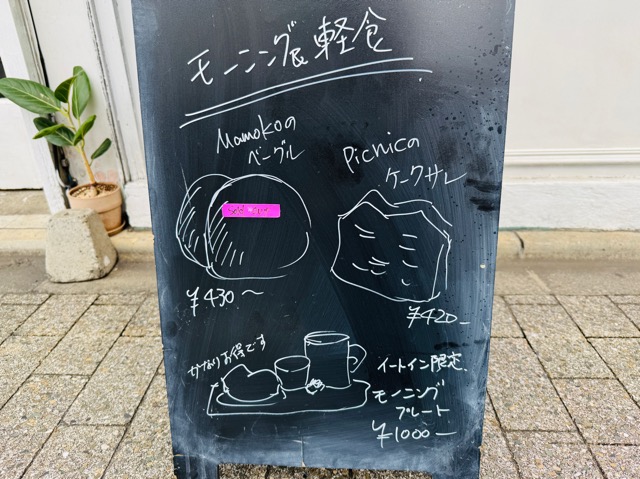 モーニング&軽食
Mamokoの
ベーグル
Picnicの
ケークサレ
Sold out
¥430〜
¥420-
かなりお得です
イートイン限定
モーニング
プレート
¥1000-